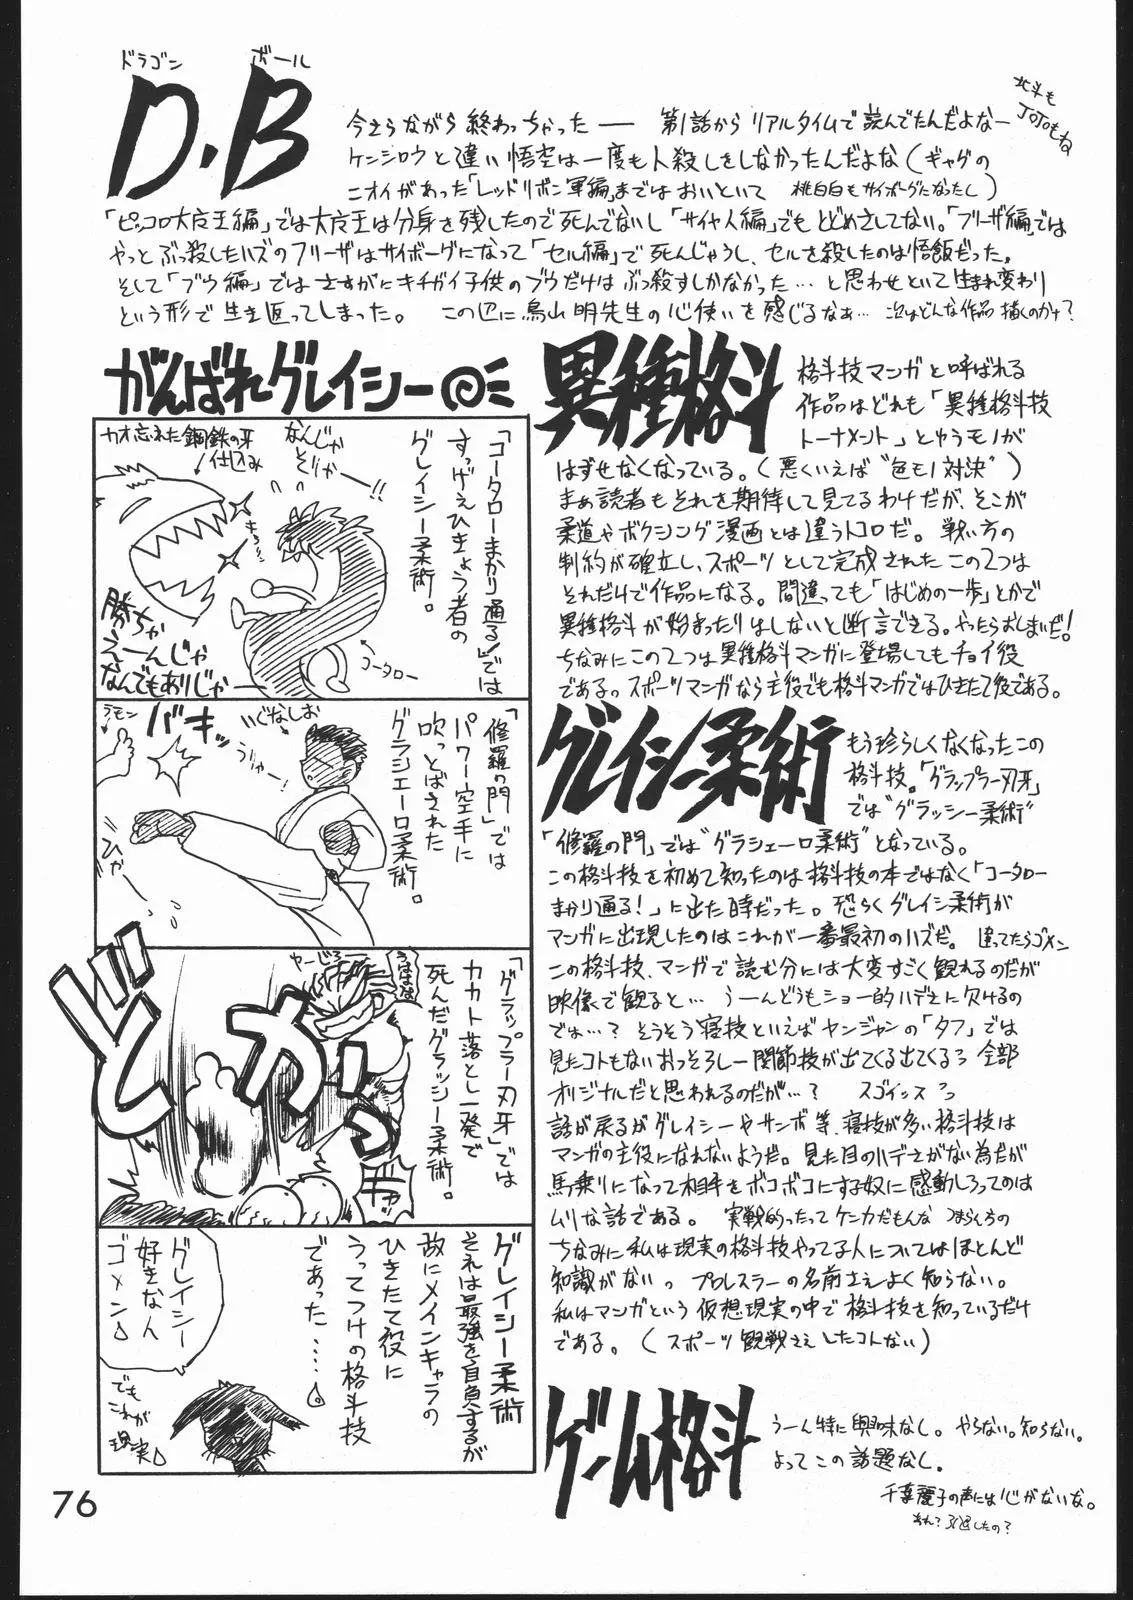 ドラゴン ボール
D.B
今さらながら終わっちゃったー 第1話からリアルタイムで読んでたんだよなー
北斗も
JOJOもね
ケンシロウと違い悟空は一度も人殺しをしなかったんだよな(ギャグの
ニオイがあった「レッドリボン軍編」まではおいといて 桃白白もサイボーグになったし)
「ピッコロ大魔王編」では大魔王は分身を残したので死んでないし「サイヤ人編」でもとどめさしてない。「フリーザ編」では
やっとぶっ殺したハズのフリーザはサイボーグになって「セル編」で死んじゃうし、セルを殺したのは悟飯だった。
そして「ブウ編」ではさすがにキチガイ子供のブウだけはぶっ殺すしかなかった…と思わせといて生まれ変わり
という形で生き返ってしまった。 この辺に鳥山明先生の心使いを感じるなぁ… 次はどんな作品描くのかナ?
がんばれグレイシー
「コータローまかり通る!」では
すっげえひきょう者の
グレイシー柔術。
なんじゃ
そりゃー!!
カオ忘れた 鋼鉄の牙
仕込み
勝ちゃ
えーんじゃ
なんでもありじゃー
コータロー
「修羅の門」では
パワー空手に
吹っとばされた
グラシエーロ柔術。
いぐなしお
うりゃー!
バキッ
ラモン
ひゃ
「グラップラー刃牙」では
カカト落とし一発で
死んだグラッシー柔術。
やーじろー
どかっ
グレイシー柔術
それは最強を自負するが
故にメインキャラの
ひきたて役に
うってつけの格斗技
であった……
グレイシー
好きな人
ゴメン
でも
これが
現実
異種格斗
格斗技マンガと呼ばれる
作品はどれも「異種格斗技
トーナメント」とゆうモノが
はずせなくなっている。(悪くいえば“色モノ対決”)
まぁ読者もそれを期待して見てるわけだが、そこが
柔道やボクシング漫画とは違うトコロだ。戦い方の
制約が確立し、スポーツとして完成されたこの2つは
それだけで作品になる。間違っても「はじめの一歩」とかで
異種格斗が始まったりはしないと断言できる。やったらおしまいだ!
ちなみにこの2つは異種格斗マンガに登場してもチョイ役
である。スポーツマンガなら主役でも格斗マンガではひきたて役である。
グレイシー柔術
もう珍らしくなくなったこの
格斗技。「グラップラー刃牙」
では“グラッシー柔術”
「修羅の門」では“グラシエーロ柔術”となっている。
この格斗技を初めて知ったのは格斗技の本ではなく「コータロー
まかり通る!」に出た時だった。恐らくグレイシー柔術が
マンガに出現したのはこれが一番最初のハズだ。違ってたらゴメン
この格斗技、マンガで読む分には大変すごく観れるのだが
映像で観ると… うーんどうもショー的ハデさに欠けるの
では…? そうそう寝技といえばヤンジャンの「タフ」では
見たコトもないおっそろしー関節技が出てくる出てくるっ 全部
オリジナルだと思われるのだが…? スゴイッスっ
話が戻るがグレイシーやサンボ等、寝技が多い格斗技は
マンガの主役になれないようだ。見た目のハデさがない為だが
馬乗りになって相手をボコボコにする奴に感動しろってのは
ムリな話である。 実戦的ったってケンカだもんな つまらんちの
ちなみに私は現実の格斗技やってる人についてはほとんど
知識がない。プロレスラーの名前さえよく知らない。
私はマンガという仮想現実の中で格斗技を知っているだけ
である。(スポーツ観戦さえしたコトない)
ゲーム格斗
うーん特に興味なし。やらない。知らない。
よってこの話題なし。
千葉麗子の声には心がないな。
あれ?引退したの?
76